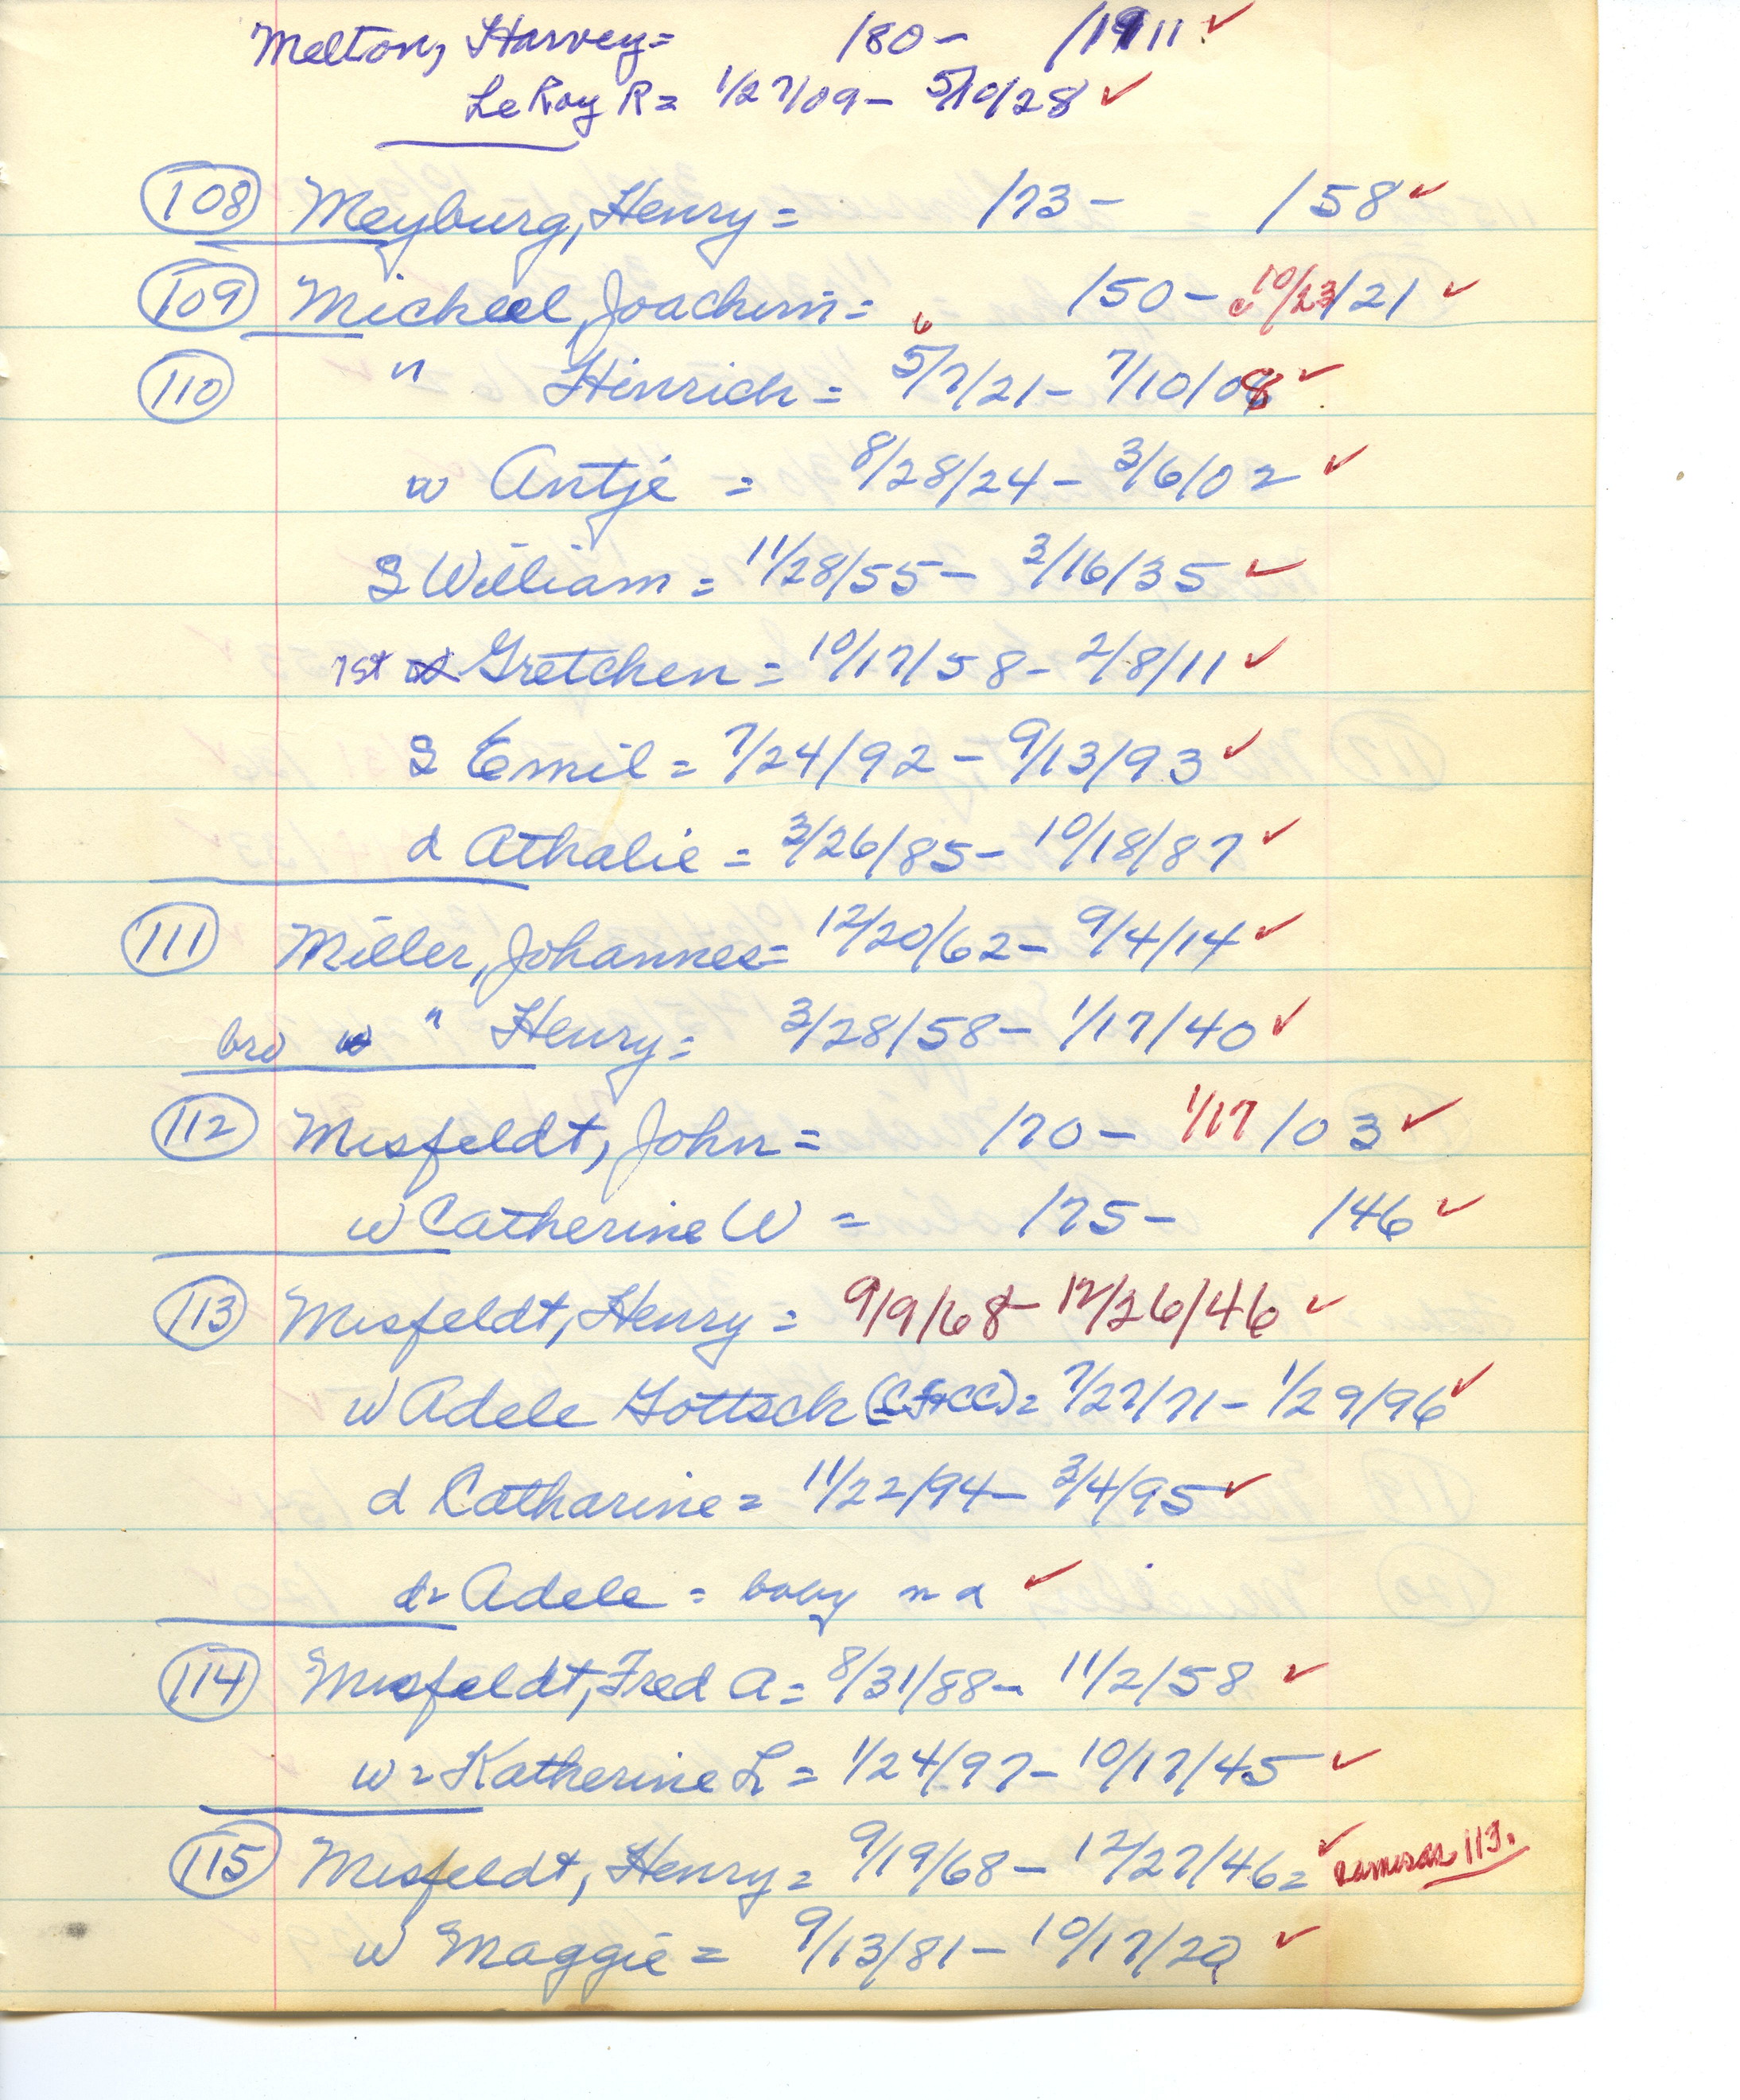 Melton, Harvey = /80 - /1911 ✓
LeRoy R = 1/27/09 - 5/10/28 ✓
108 Meyburg, Henry = /73 - /58 ✓
109 Micheel, Joachim = /50 - 10/23/21 ✓
110 " Hinrich = 5/7/21 - 7/10/08 ✓
w Antje = 8/28/24 - 3/6/02 ✓
S William = 11/28/55 - 3/16/35 ✓
1st w Gretchen = 10/17/58 - 2/8/11 ✓
S Emil = 7/24/92 - 9/13/93 ✓
d Athalie = 3/26/85 - 10/18/87 ✓
111 Miller, Johannes = 12/20/62 - 9/4/14 ✓
bro " Henry = 3/28/58 - 1/17/40 ✓
112 Misfeldt, John = /70 - 1/17/03 ✓
w Catherine W = /75 - /46 ✓
113 Misfeldt, Henry = 9/9/68 - 12/26/46 ✓
w Adele Gottsch = 7/27/71 - 1/29/96 ✓
d Catharine = 11/22/94 - 3/4/95 ✓
d = Adele = baby n d ✓
114 Misfeldt, Fred A = 8/31/88 - 11/2/58 ✓
w = Katherine L = 1/24/97 - 10/17/45 ✓
115 Misfeldt, Henry = 9/19/68 - 12/27/46 = ✓ same as 113.
w Maggie = 9/13/81 - 10/17/20 ✓